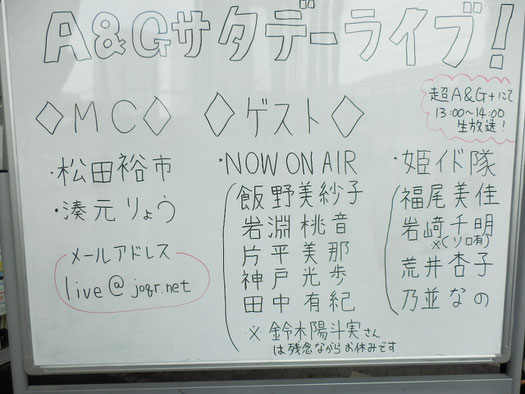 A&Gサタデーライブ!
超A&G+にて
13:00~14:00
生放送!
◇MC◇
・松田裕市
・湊元りょう
メールアドレス
live@joqr.net
◇ゲスト◇
・NOW ON AIR
飯野美紗子
岩淵桃音
片平美那
神戸光歩
田中有紀
※鈴木陽斗実さん
は残念ながらお休みです
・姫イド隊
福尾美佳
岩﨑千明
※(ソロ有)
荒井杏子
乃並なの